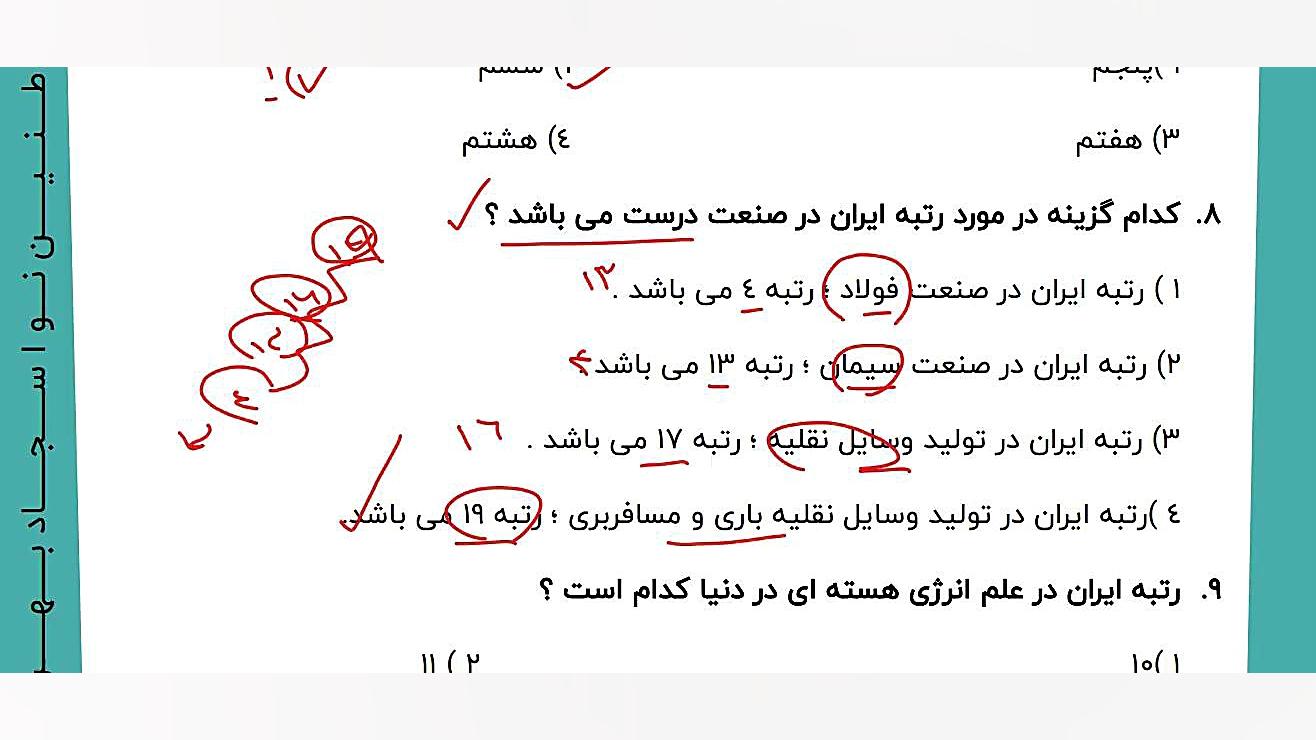 ۳) هفتم
٤) هشتم
۸. کدام گزینه در مورد رتبه ایران در صنعت درست می باشد ؟
۱ ) رتبه ایران در صنعت فولاد ؛ رتبه ٤ می باشد . ۱۳
۲) رتبه ایران در صنعت سیمان ؛ رتبه ۱۳ می باشد . ۴
۳) رتبه ایران در تولید وسایل نقلیه ؛ رتبه ۱۷ می باشد . ۱٦
٤ )رتبه ایران در تولید وسایل نقلیه باری و مسافربری ؛ رتبه ۱۹ می باشد.
۹. رتبه ایران در علم انرژی هسته ای در دنیا کدام است ؟
۱ )۱۰
۲ ) ۱۱